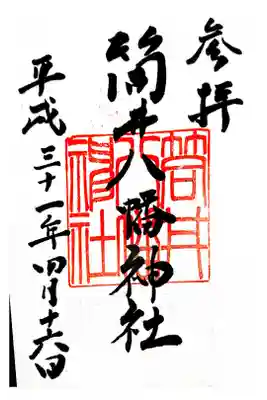 参拝
筒井八幡神社
平成三十一年四月十六日
筒井
神社